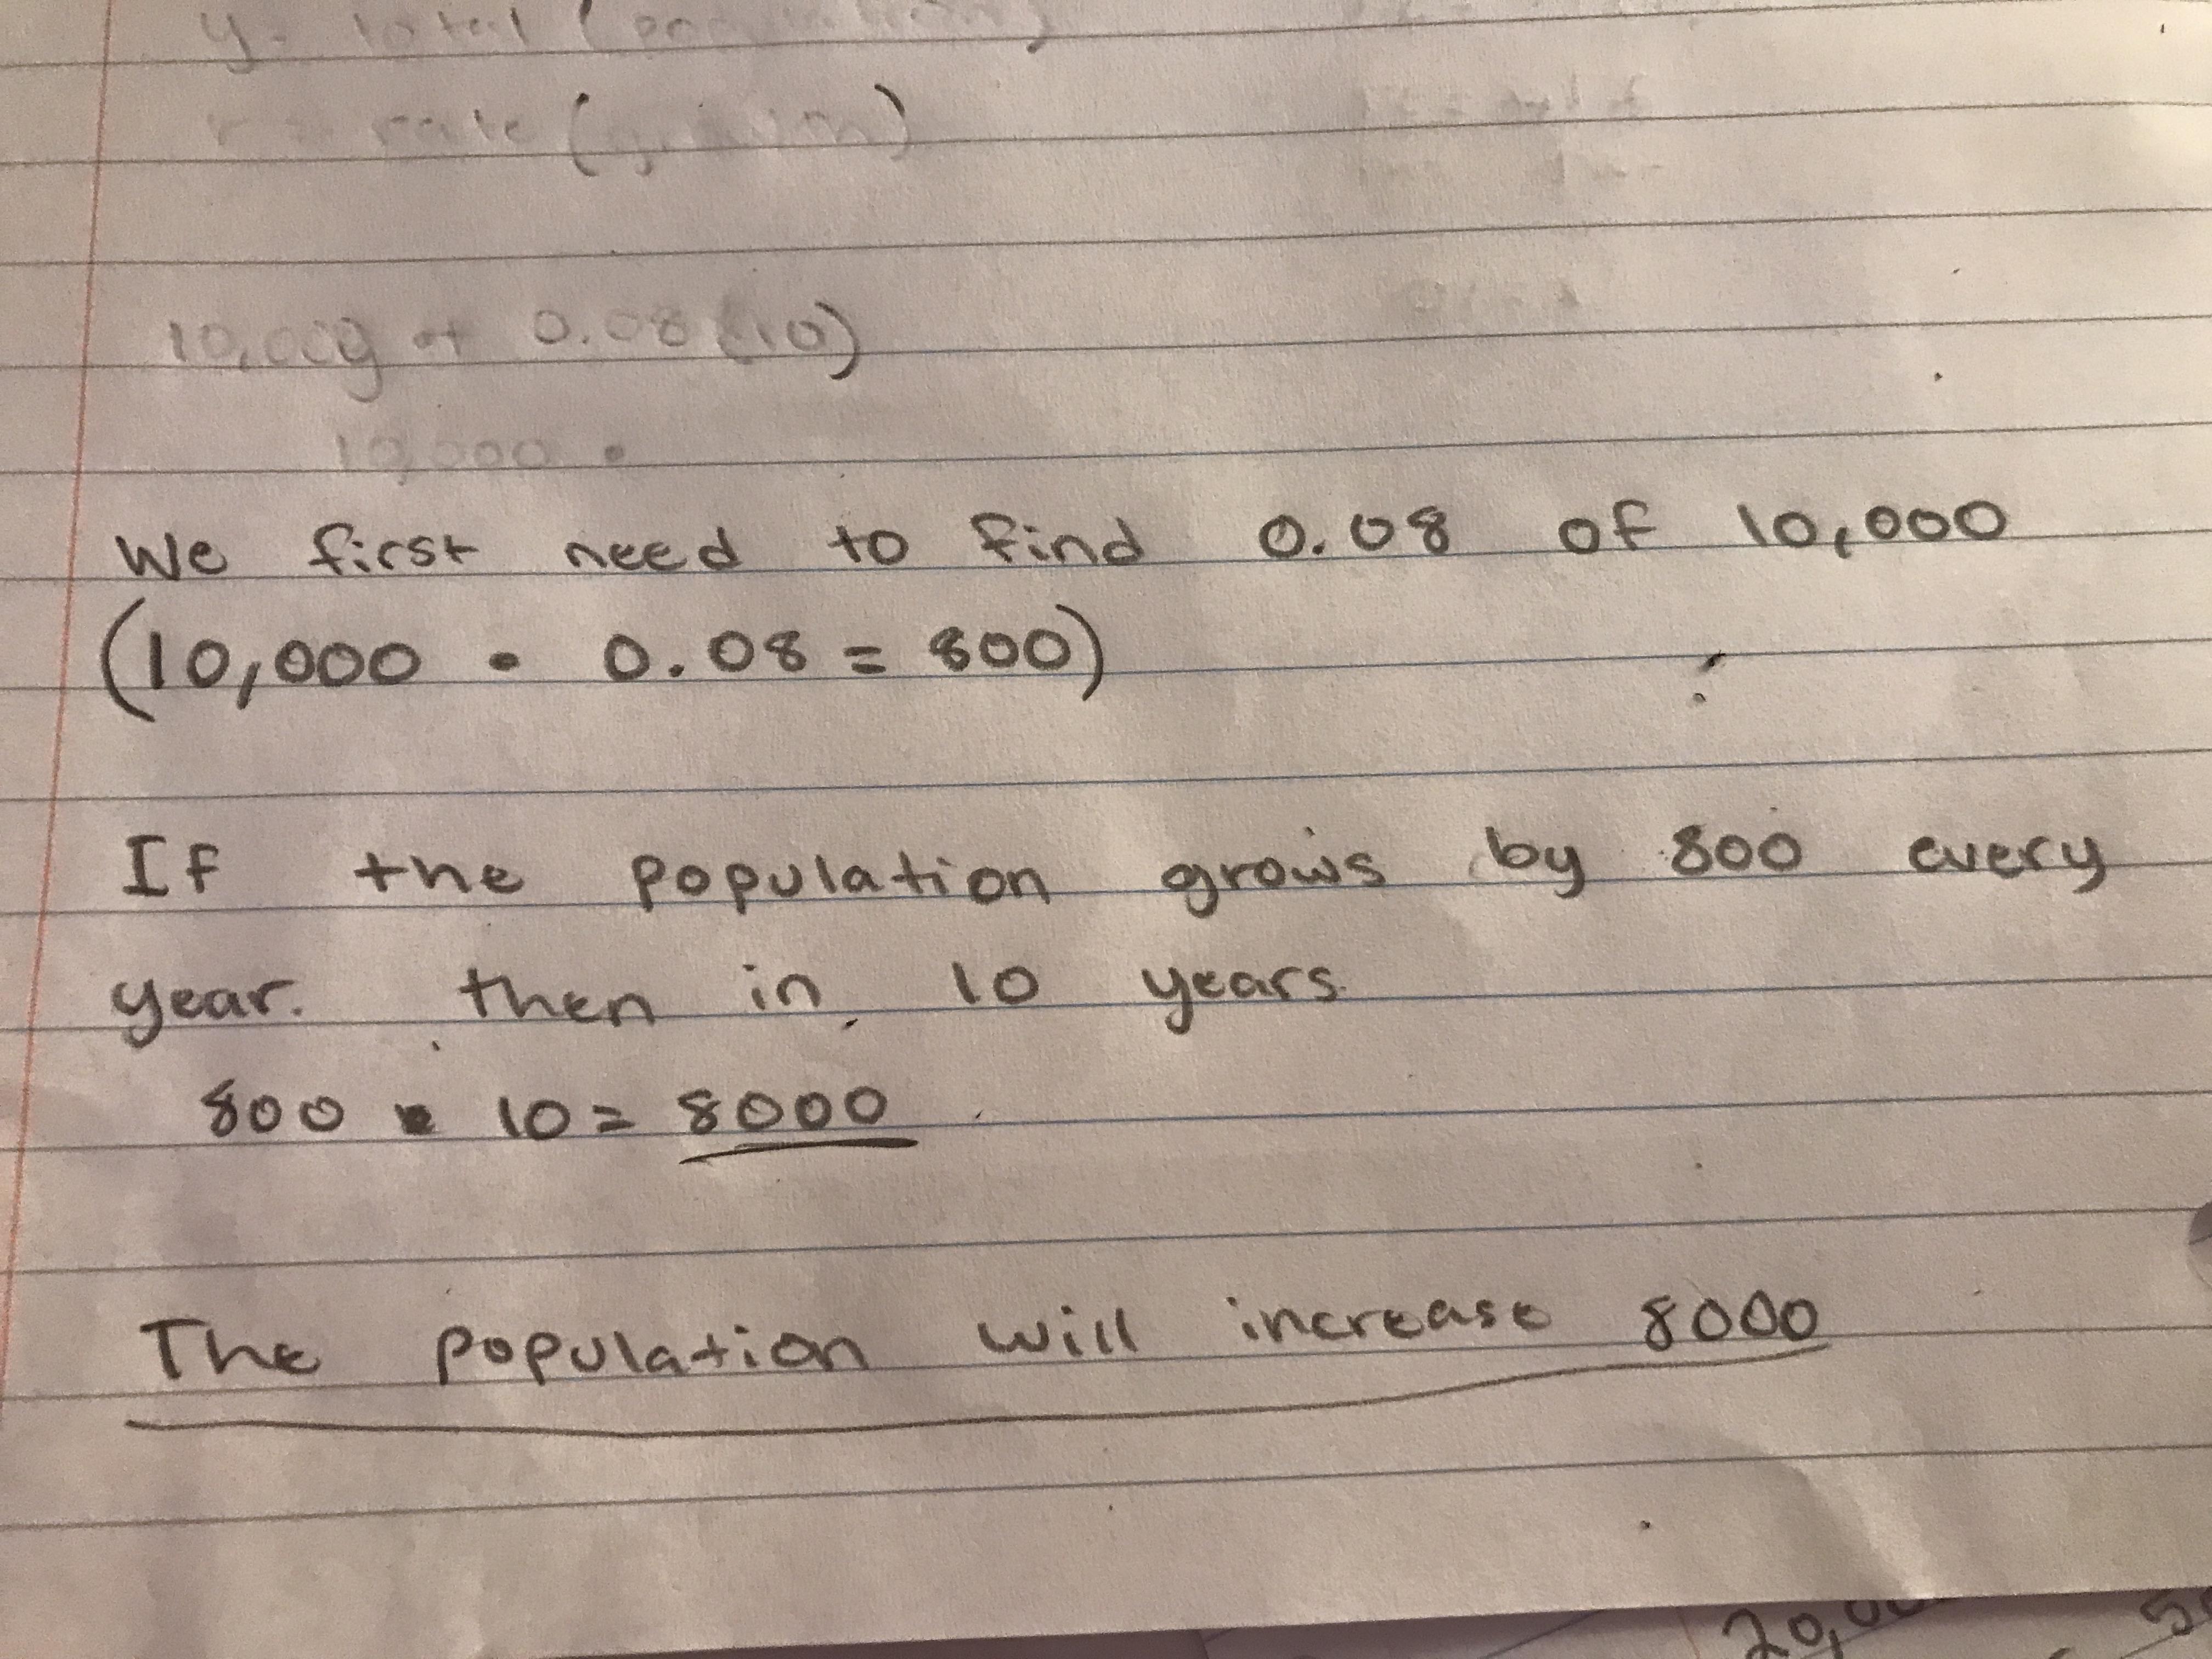 y = total (population)
r = rate (growth)
10,000y + 0.08(10)
10,000 •
We first need to find 0.08 of 10,000
(10,000 • 0.08 = 800)
If the population grows by 800 every
year. then in 10 years
800 • 10 = 8000
The population will increase 8000